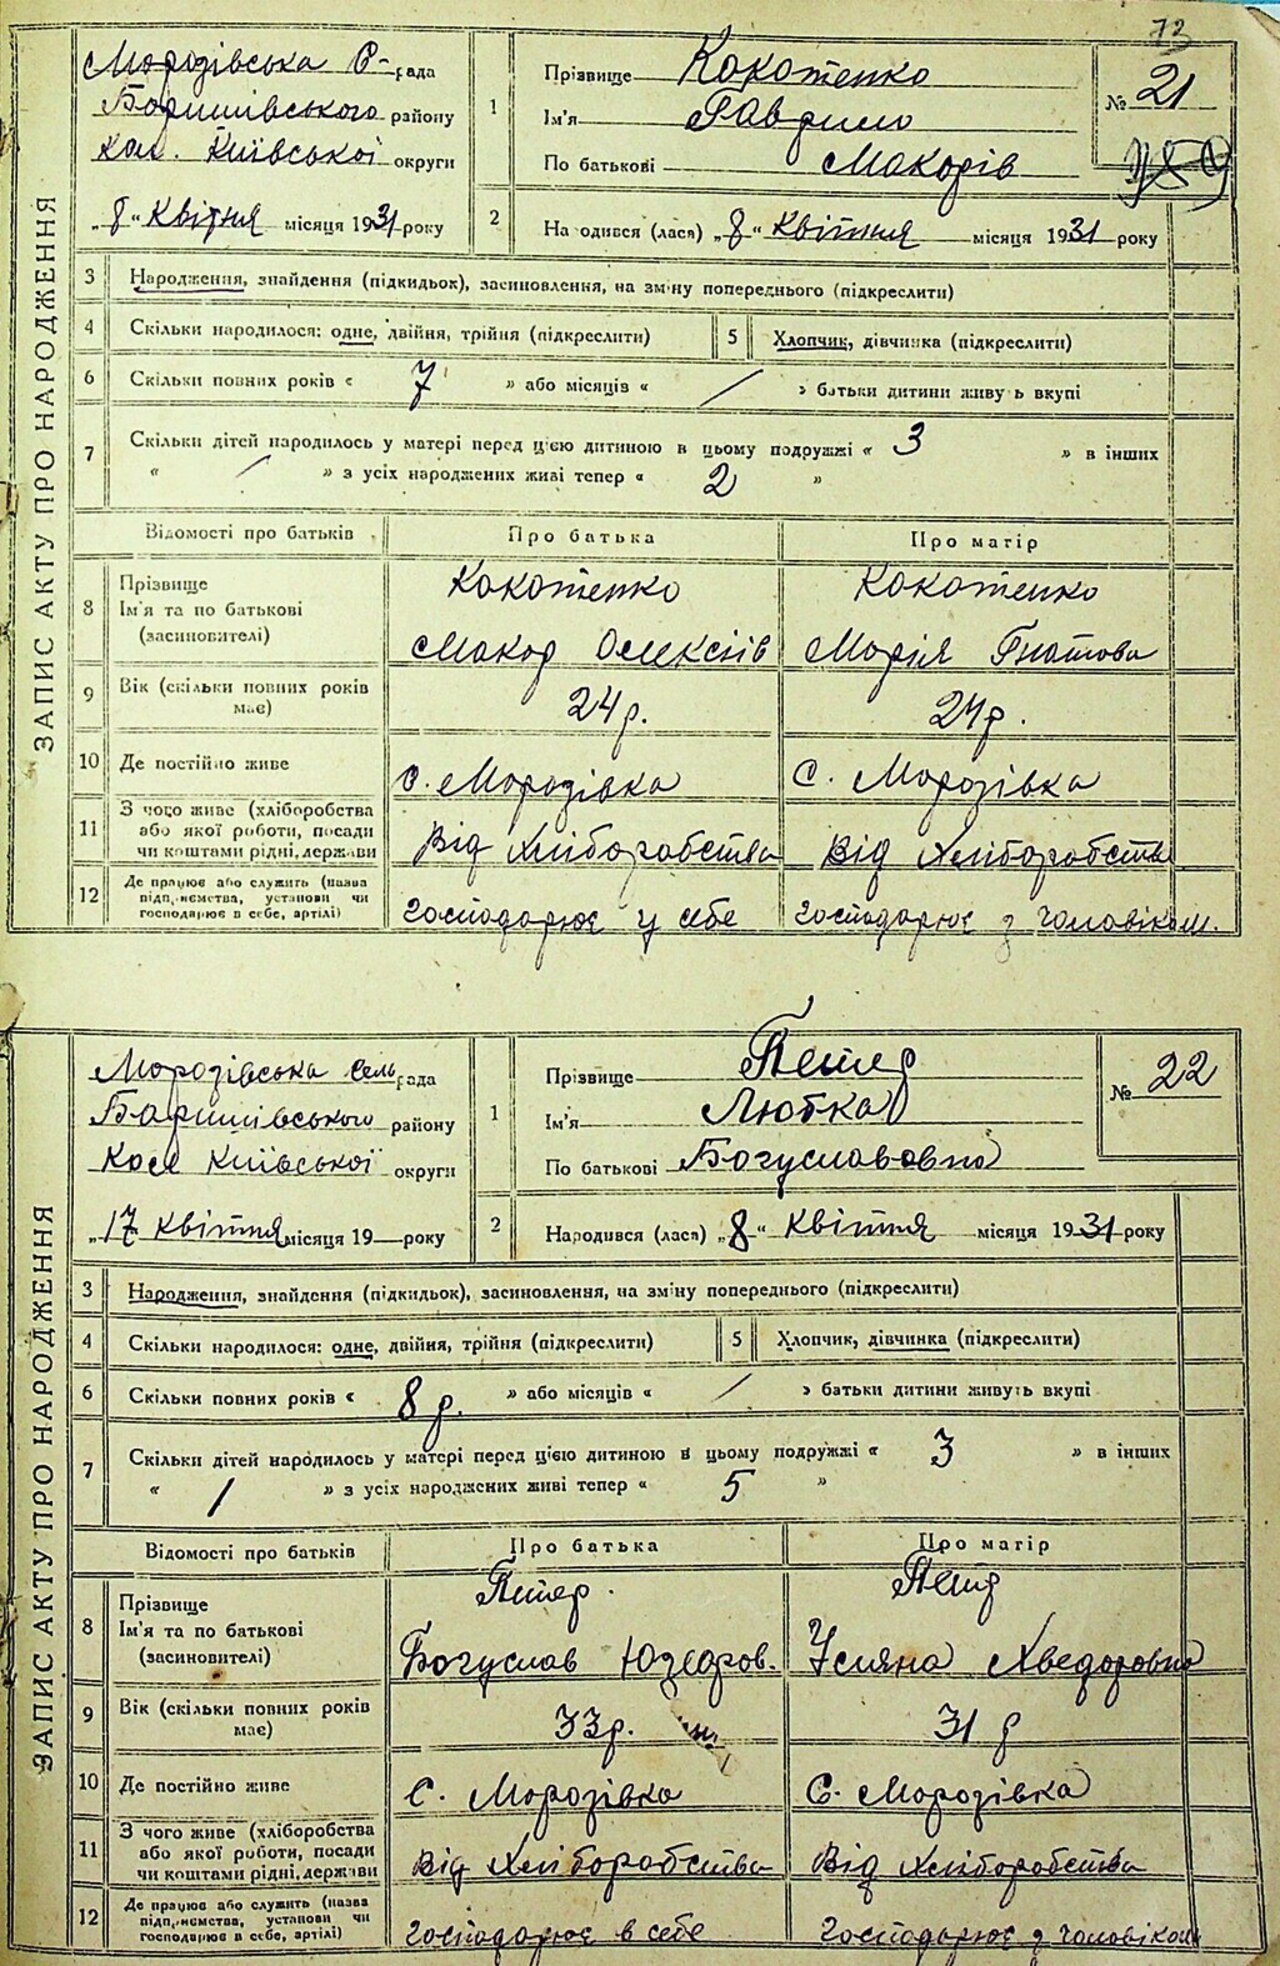 73
ЗАПИС АКТУ ПРО НАРОДЖЕННЯ
Морозівська С-рада
Баришівського району
кол. Київської округи
„8“ Квітня місяця 1931 року
1 Прізвище Кокотенко
Ім'я Гаврило
По батькові Макарів
№ 21
2 Народився (лася) „8“ квітня місяця 1931 року
3 Народження, знайдення (підкидьок), засиновлення, на зміну попереднього (підкреслити)
4 Скільки народилося: одне, двійня, трійня (підкреслити) 5 Хлопчик, дівчинка (підкреслити)
6 Скільки повних років « 7 » або місяців « / » батьки дитини живуть вкупі
7 Скільки дітей народилось у матері перед цією дитиною в цьому подружжі « 3 » в інших
« / » з усіх народжених живі тепер « 2 »
Відомості про батьків Про батька Про матір
8 Прізвище Кокотенко Кокотенко
Ім'я та по батькові
(засиновителі) Макар Олексіїв Марія Гнатова
9 Вік (скільки повних років має) 24 р. 24 р.
10 Де постійно живе с. Морозівка С. Морозівка
11 З чого живе (хліборобства
або якої роботи, посади
чи коштами рідні, держави Від Хліборобства Від Хліборобства
12 Де працює або служить (назва
підприємства, установи чи
господарює в себе, артілі) Господарює у себе Господарює з чоловіком.
ЗАПИС АКТУ ПРО НАРОДЖЕННЯ
Морозівська сельрада
Баришівського району
Київської округи
„17 квітня місяця 19 року
1 Прізвище Петер
Ім'я Любка
По батькові Богуславовна
№ 22
2 Народився (лася) „8“ квітня місяця 1931 року
3 Народження, знайдення (підкидьок), засиновлення, на зміну попереднього (підкреслити)
4 Скільки народилося: одне, двійня, трійня (підкреслити) 5 Хлопчик, дівчинка (підкреслити)
6 Скільки повних років « 8 р. » або місяців « / » батьки дитини живуть вкупі
7 Скільки дітей народилось у матері перед цією дитиною в цьому подружжі « 3 » в інших
« 1 » з усіх народжених живі тепер « 5 »
Відомості про батьків Про батька Про матір
8 Прізвище Петер Петер
Ім'я та по батькові
(засиновителі) Богуслав Уляна Хведоровна
9 Вік (скільки повних років має) 33 р. 31 р
10 Де постійно живе С. Морозівка С. Морозівка
11 З чого живе (хліборобства
або якої роботи, посади
чи коштами рідні, держави Від Хліборобства Від Хліборобства
12 Де працює або служить (назва
підприємства, установи чи
господарює в себе, артілі) Господарює в себе Господарює з чоловіком